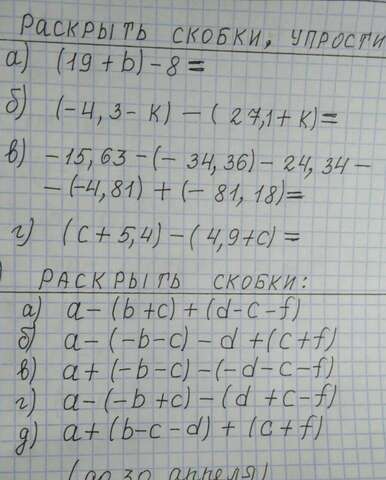 РАСКРЫТЬ СКОБКИ, УПРОСТИ
а) (19 + b) - 8 =
б) (-4,3 - K) - (27,1 + K) =
в) -15,63 - (-34,36) - 24,34 -
- (-4,81) + (-81,18) =
г) (c + 5,4) - (4,9 + c) =
) РАСКРЫТЬ СКОБКИ:
а) a - (b + c) + (d - c - f)
б) a - (-b - c) - d + (c + f)
в) a + (-b - c) - (-d - c - f)
г) a - (-b + c) - (d + c - f)
д) a + (b - c - d) + (c + f)
(до 30 апреля)